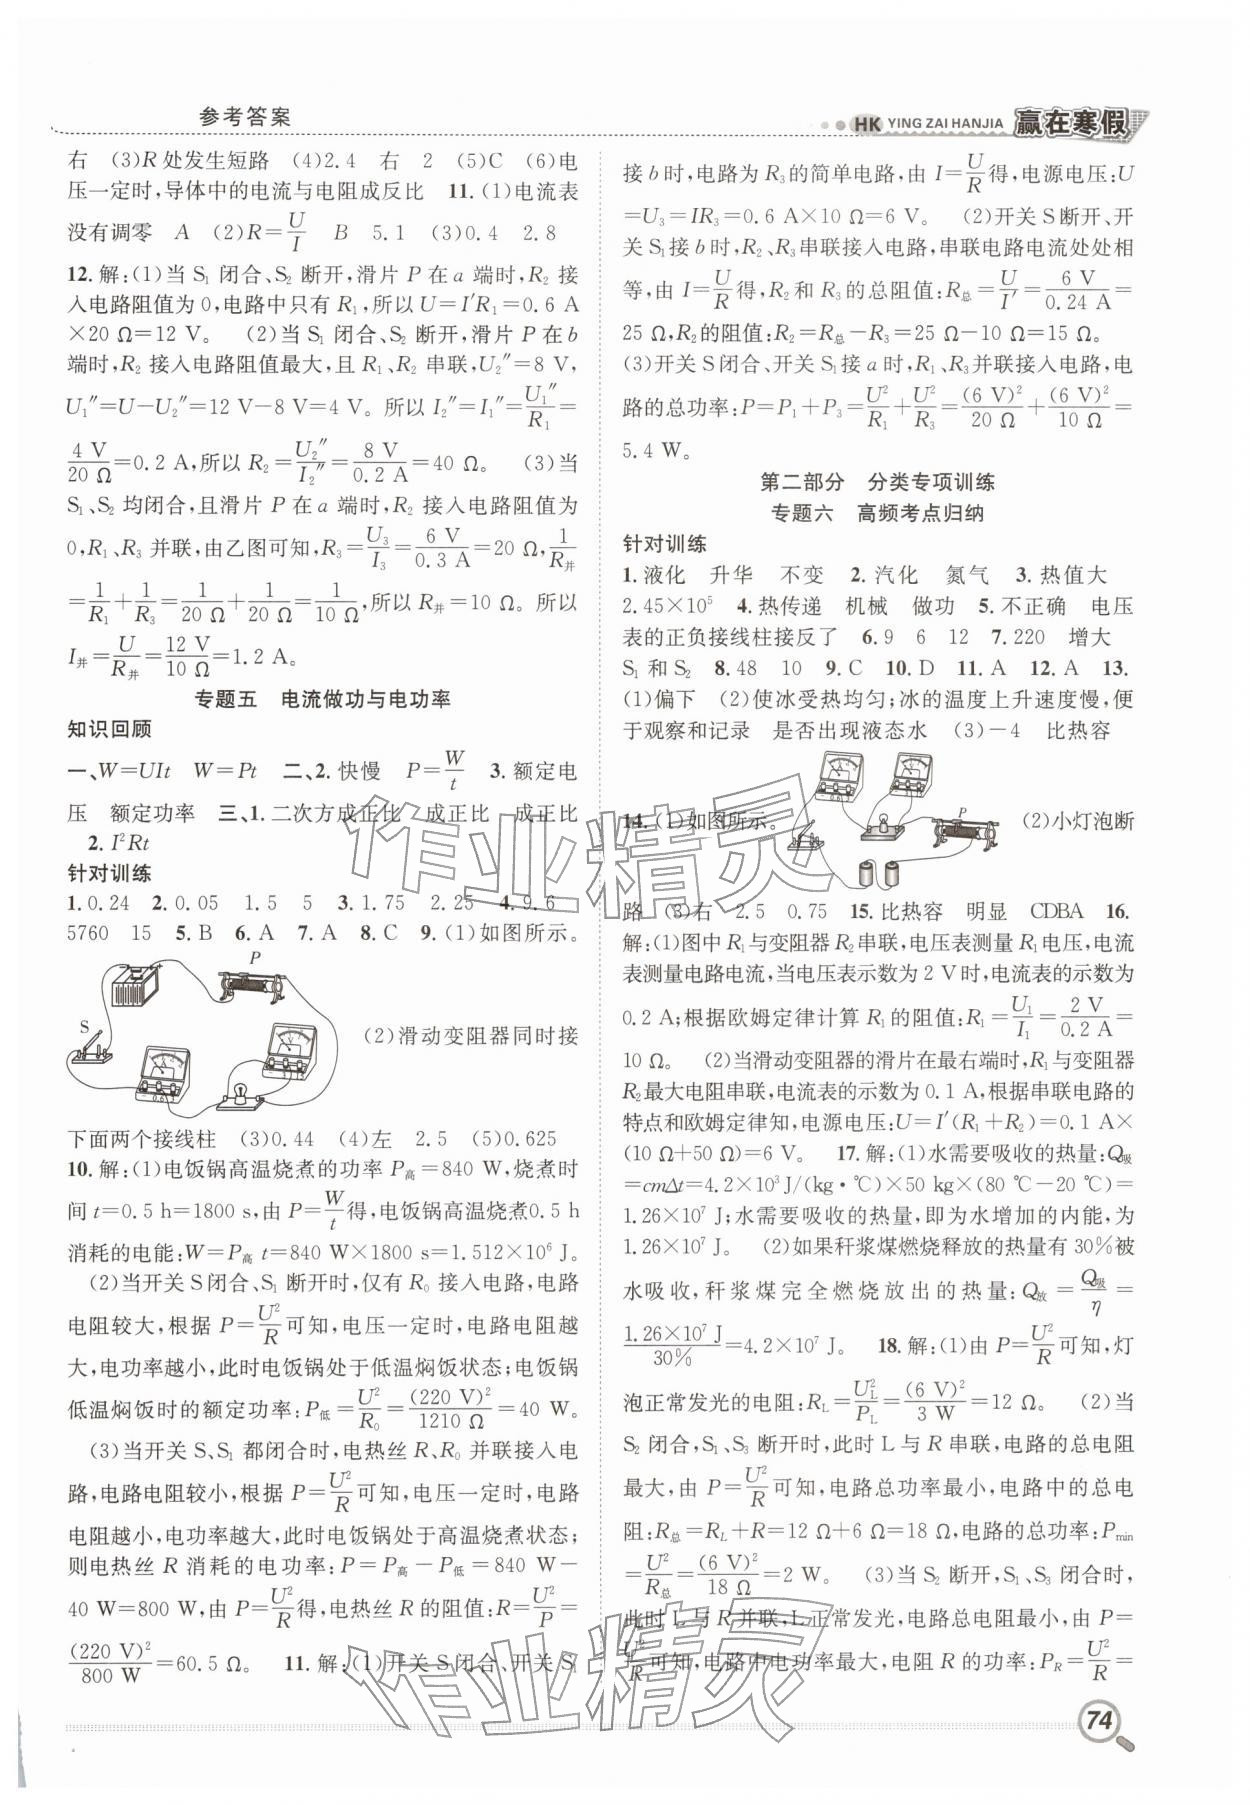 参考答案
HK YING ZAI HANJIA 赢在寒假
右 (3)R处发生短路 (4)2.4 右 2 (5)C (6)电
压一定时,导体中的电流与电阻成反比 11.(1)电流表
没有调零 A (2)R=U/I B 5.1 (3)0.4 2.8
12.解:(1)当 S₁ 闭合、S₂ 断开,滑片 P 在 a 端时,R₂ 接
入电路阻值为0,电路中只有 R₁,所以 U=I′R₁=0.6 A
×20 Ω=12 V。 (2)当 S₁ 闭合、S₂ 断开,滑片 P 在 b
端时,R₂ 接入电路阻值最大,且 R₁、R₂ 串联,U₂″=8 V,
U₁″=U−U₂″=12 V−8 V=4 V。所以 I₂″=I₁″=U₁″/R₁=
4 V/20 Ω=0.2 A,所以 R₂=U₂″/I₂″=8 V/0.2 A=40 Ω。 (3)当
S₁、S₂ 均闭合,且滑片 P 在 a 端时,R₂ 接入电路阻值为
0,R₁、R₃ 并联,由乙图可知,R₃=U₃/I₃=6 V/0.3 A=20 Ω,1/R并
=1/R₁+1/R₃=1/20 Ω+1/20 Ω=1/10 Ω,所以 R并=10 Ω。所以
I并=U/R并=12 V/10 Ω=1.2 A。
专题五 电流做功与电功率
知识回顾
一、W=UIt W=Pt 二、2.快慢 P=W/t 3.额定电
压 额定功率 三、1.二次方成正比 成正比 成正比
2.I²Rt
针对训练
1.0.24 2.0.05 1.5 5 3.1.75 2.25 4.9.6
5760 15 5.B 6.A 7.A 8.C 9.(1)如图所示。
P
S
(2)滑动变阻器同时接
下面两个接线柱 (3)0.44 (4)左 2.5 (5)0.625
10.解:(1)电饭锅高温烧煮的功率 P高=840 W,烧煮时
间 t=0.5 h=1800 s,由 P=W/t得,电饭锅高温烧煮0.5 h
消耗的电能:W=P高 t=840 W×1800 s=1.512×10⁶ J。
(2)当开关 S闭合、S₁ 断开时,仅有 R₀ 接入电路,电路
电阻较大,根据 P=U²/R可知,电压一定时,电路电阻越
大,电功率越小,此时电饭锅处于低温焖饭状态;电饭锅
低温焖饭时的额定功率:P低=U²/R₀=(220 V)²/1210 Ω=40 W。
(3)当开关 S、S₁ 都闭合时,电热丝 R、R₀ 并联接入电
路,电路电阻较小,根据 P=U²/R可知,电压一定时,电路
电阻越小,电功率越大,此时电饭锅处于高温烧煮状态;
则电热丝 R 消耗的电功率:P=P高−P低=840 W−
40 W=800 W,由 P=U²/R得,电热丝 R的阻值:R=U²/P=
(220 V)²/800 W=60.5 Ω。 11.解:(1)开关 S闭合、开关 S₁
接 b 时,电路为 R₃的简单电路,由 I=U/R得,电源电压:U
=U₃=IR₃=0.6 A×10 Ω=6 V。 (2)开关 S断开、开
关 S₁接 b 时,R₂、R₃串联接入电路,串联电路电流处处相
等,由 I=U/R得,R₂和 R₃的总阻值:R总=U/I′=6 V/0.24 A=
25 Ω,R₂的阻值:R₂=R总−R₃=25 Ω−10 Ω=15 Ω。
(3)开关 S闭合、开关 S₁接 a 时,R₁、R₃并联接入电路,电
路的总功率:P=P₁+P₃=U²/R₁+U²/R₃=(6 V)²/20 Ω+(6 V)²/10 Ω=
5.4 W。
第二部分 分类专项训练
专题六 高频考点归纳
针对训练
1.液化 升华 不变 2.汽化 氮气 3.热值大
2.45×10⁵ 4.热传递 机械 做功 5.不正确 电压
表的正负接线柱接反了 6.9 6 12 7.220 增大
S₁ 和 S₂ 8.48 10 9.C 10.D 11.A 12.A 13.
(1)偏下 (2)使冰受热均匀;冰的温度上升速度慢,便
于观察和记录 是否出现液态水 (3)−4 比热容
14.(1)如图所示。 P (2)小灯泡断
路 (3)右 2.5 0.75 15.比热容 明显 CDBA 16.
解:(1)图中 R₁与变阻器 R₂串联,电压表测量 R₁电压,电流
表测量电路电流,当电压表示数为 2 V时,电流表的示数为
0.2 A;根据欧姆定律计算 R₁的阻值:R₁=U₁/I₁=2 V/0.2 A=
10 Ω。 (2)当滑动变阻器的滑片在最右端时,R₁与变阻器
R₂最大电阻串联,电流表的示数为 0.1 A,根据串联电路的
特点和欧姆定律知,电源电压:U=I′(R₁+R₂)=0.1 A×
(10 Ω+50 Ω)=6 V。 17.解:(1)水需要吸收的热量:Q吸
=cmΔt=4.2×10³ J/(kg·℃)×50 kg×(80 ℃−20 ℃)=
1.26×10⁷ J;水需要吸收的热量,即为水增加的内能,为
1.26×10⁷ J。 (2)如果秆浆煤燃烧释放的热量有 30%被
水吸收,秆浆煤完全燃烧放出的热量:Q放=Q吸/η=
1.26×10⁷ J/30%=4.2×10⁷ J。 18.解:(1)由 P=U²/R可知,灯
泡正常发光的电阻:R_L=U_L²/P_L=(6 V)²/3 W=12 Ω。 (2)当
S₂ 闭合,S₁、S₃ 断开时,此时 L 与 R 串联,电路的总电阻
最大,由 P=U²/R可知,电路总功率最小,电路中的总电
阻:R总=R_L+R=12 Ω+6 Ω=18 Ω,电路的总功率:P_min
=U²/R总=(6 V)²/18 Ω=2 W。 (3)当 S₂ 断开,S₁、S₃ 闭合时,
此时 L 与 R 并联,L正常发光,电路总电阻最小,由 P=
U²/R可知,电路中电功率最大,电阻 R的功率:P_R=U²/R=
74
作业精灵
作业精灵